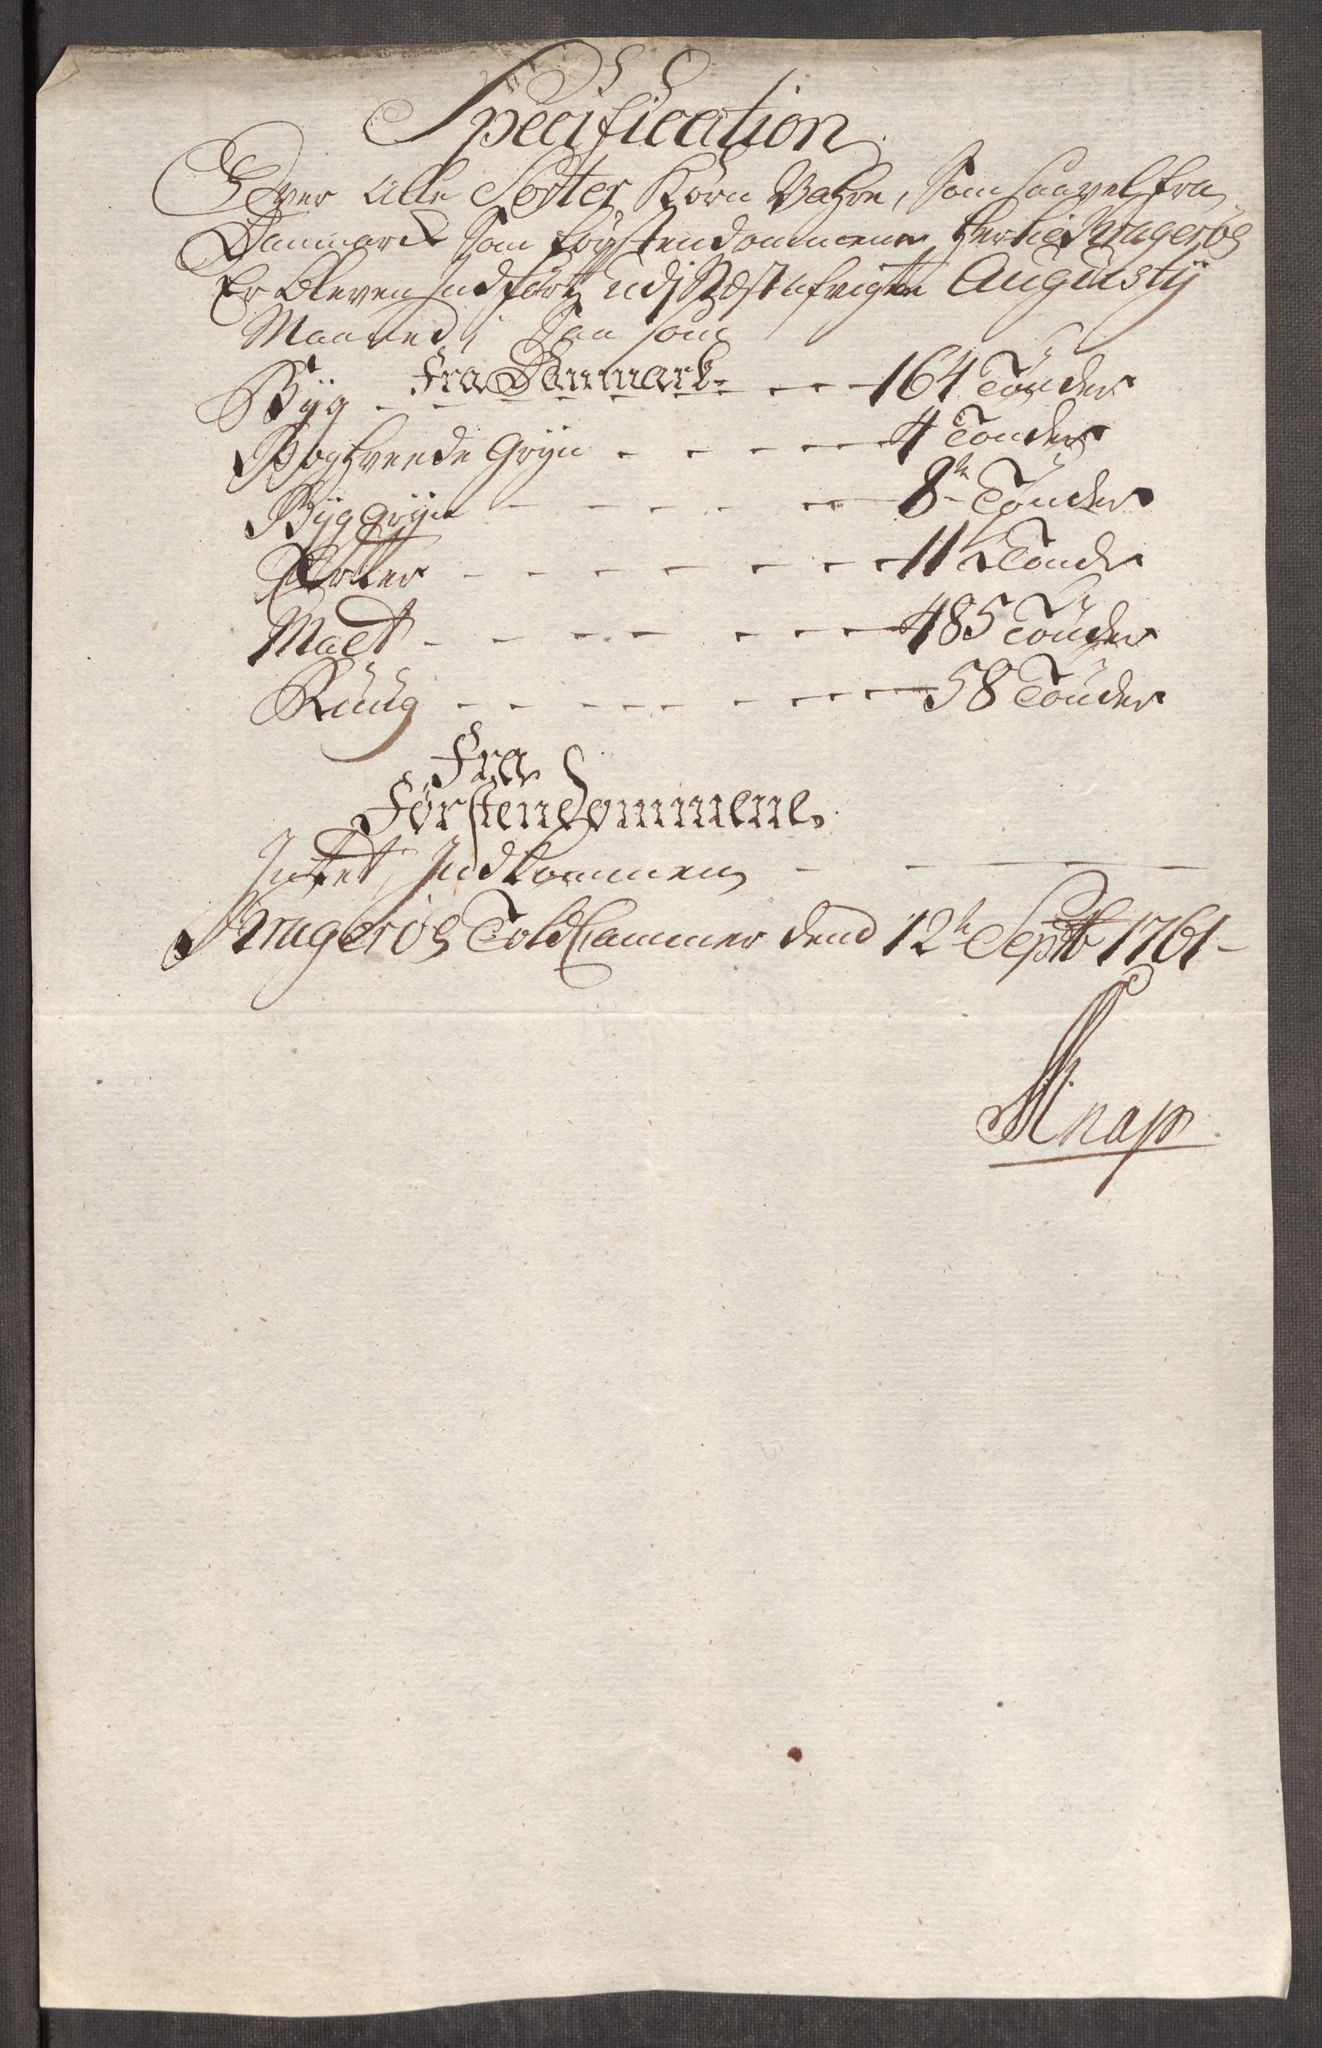 Specification
Over alle Sorter Korn Vahre, som saavel fra
Danmarck som Førstendommene hertil Kragerøe
Er bleven Indført udj Næst afvigte Augustij
Maaned, Saa som
Fra Danmark
Byg - - - - - - 164 Tønder
Boghveede Gryn - - - - - 4 Tønder
Byggryn - - - - - 8 Tønder
Erter - - - - - - - 11½ Tønde
Malt - - - - - - - 485 Tönder
Ruug - - - - - - - - 58 Tönder
Fra
Førstendommene
Intet Indkommen - - - - -
Kragerøe Told Cammer dend 12te Septb 1761
Knap